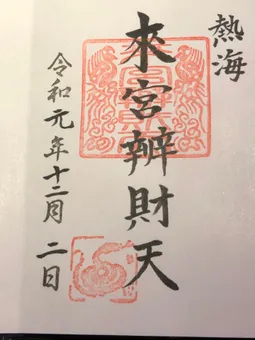 熱海
來宮辨財天
令和元年十二月二日